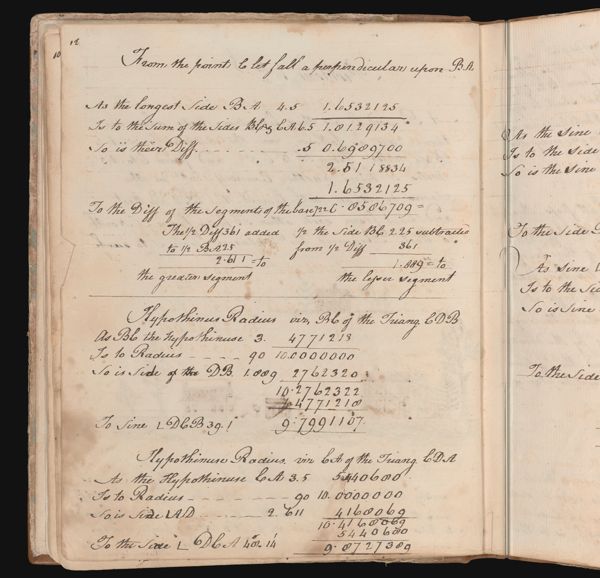 10
12
From the point C let fall a perpendicular upon BA
As the longest Side BA 4.5 1.6532125
Is to the Sum of the Sides BC & CA 6.5 1.8129134
So is their Diff. .5 0.6989700
2.5118834
1.6532125
To the Diff of the Segments of the base 722 0.8586709
The 1/2 Diff 361 added 1/2 the Side BC 2.25 subtracted
to 1/2 BA 225 from 1/2 Diff 361
2.611 = to 1.889 = to
the greater segment the lesser segment
Hypothinus Radius viz, BC of the Triang. CDB
As BC the hypothinuse 3. 4771213
Is to Radius 90 10.0000000
So is Side of the DB 1.889 2762320
10.2762322
4771218
To Sine DCB 39.1 9.7991107
Hypothinuse Radius viz CA of the Triang. CDA
As the Hypothinuse CA 3.5 5440680
Is to Radius 90 10.0000000
So is Side AD 2.611 4168069
10.4168069
5440680
To the Side DCA 48.14 9.8727389
As the Sine
Is to the Side
So is the Sine
To the Side
As Sine
Is to the
So is Sine
To the Side